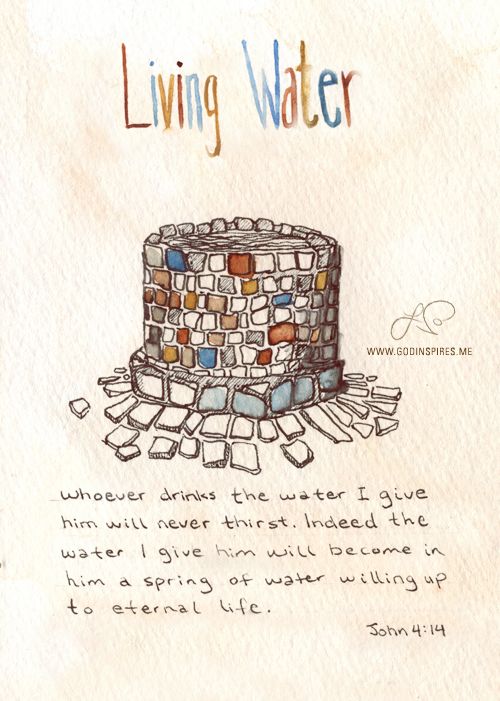 Living Water
WWW.GODINSPIRES.ME
whoever drinks the water I give
him will never thirst. Indeed the
water I give him will become in
him a spring of water willing up
to eternal life.
John 4:14